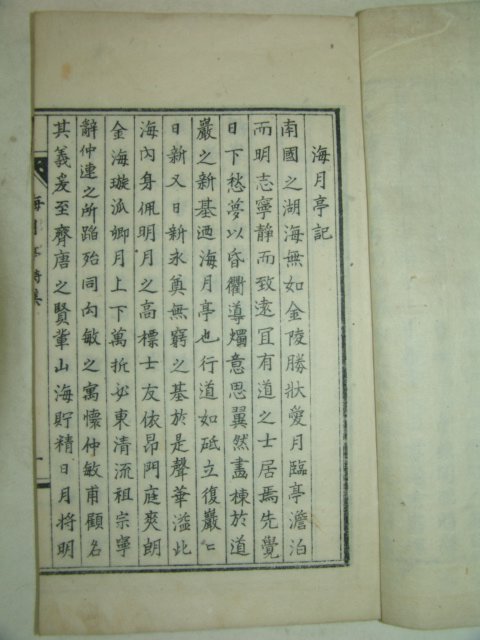 海月亭記
南國之湖海無如金陵勝狀愛月臨亭澹泊
而明志寧静而致遠宜有道之士居焉先覺
日下愁夢以昏衢導燭意思翼然畫棟於道
巖之新基迺海月亭也行道如砥立復巖
日新又日新永奠無窮之基於是聲華溢此
海內身佩明月之高標士友依昻門庭爽朗
金海璇派卿月上下萬折必東清流祖宗寧
辭仲連之所蹈殆同向敏之寓懷仲敏甫顧名
其義爰至齊唐之賢輩山海貯精日月將明
海月亭詩集